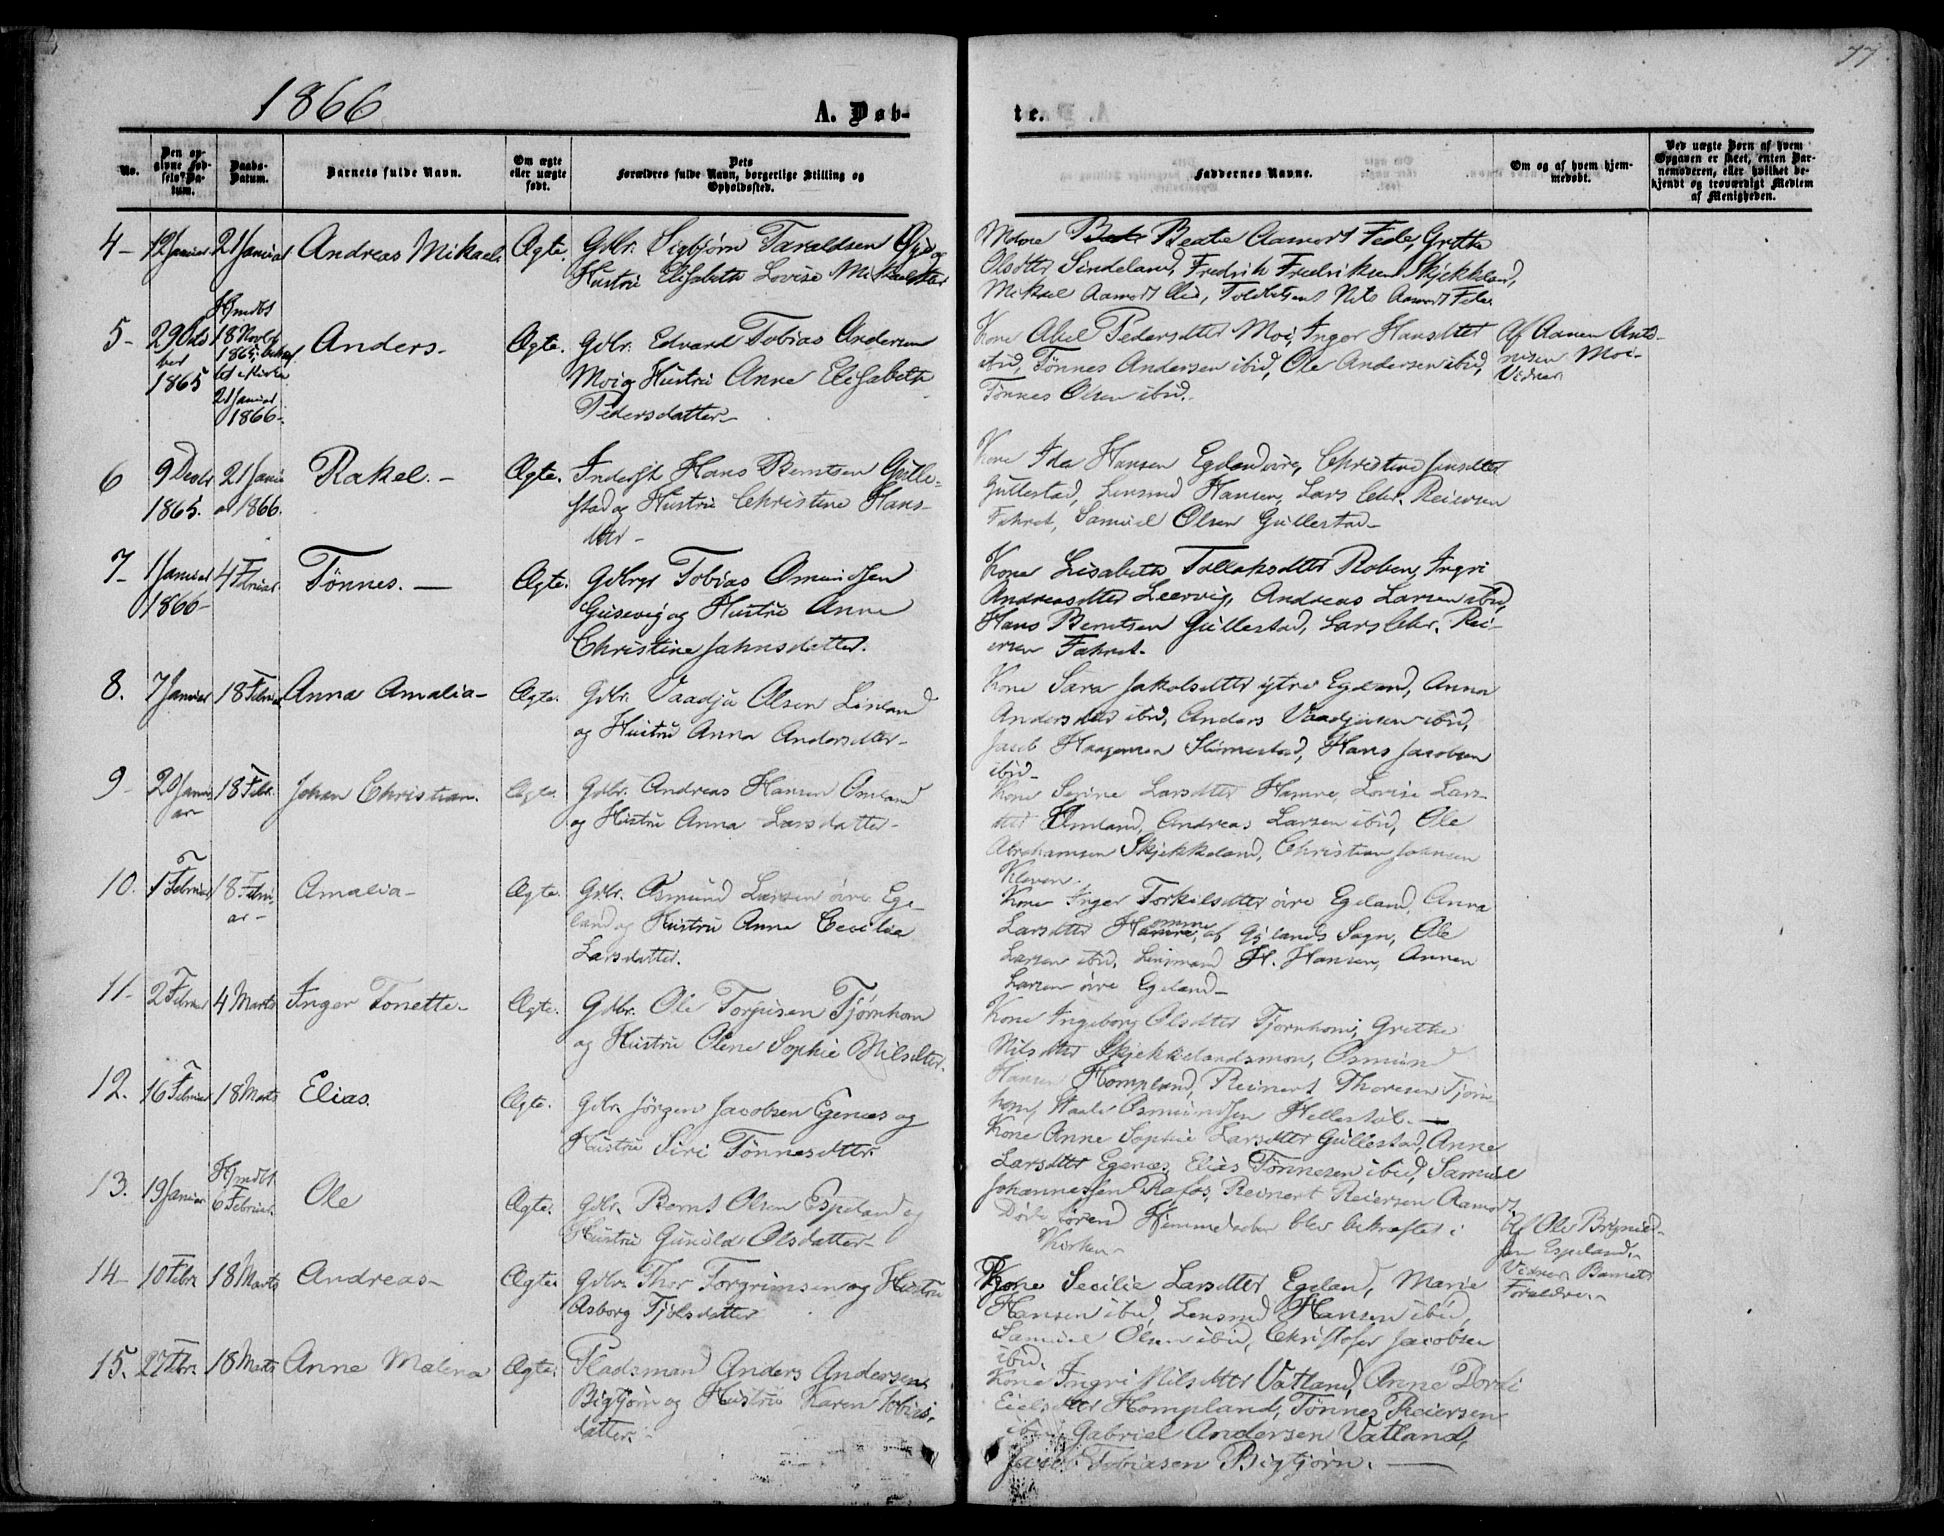 77
1866
A. Døb-
te.
No.
Den op-
givne Fød-
sels-Da-
tum.
Daabs-
Datum.
Barnets fulde Navn.
Om ægte
eller uægte
født.
Dets
Forældres fulde Navn, borgerlige Stilling og
Opholdssted.
Faddernes Navne.
Om og af hvem hjem-
medøbt.
Ved uægte Børn af hvem
Opgaven er skeet, enten Bar-
nemoderen, eller hvilket be-
kjendt og troværdigt Medlem
af Menigheden.
4- 12 Januar 21 Januar Andreas Mikael Ægte. Gdbr. Sigbjørn Taraldsen og
Hustru Elisabeth Lovise
Beate Aamodt Fede, Grethe
Olsdtter Sindeland, Fredrik Fredriksen Skjekkeland,
Mikael Aamodt Nils Aamodt Fede
5- 29 1865 Hjmdbt 18 Novbr 1865, Kirken 21 Januar 1866. Anders- Ægte. Gdbr. Edvard Tobias Andersen
Moi og Hustru Anne Elisabeth
Pedersdatter-
Kone Abel Pedersdtter Moi, Inger Hansdtter
ibid, Tønnes Andersen ibid, Ole Andersen ibid,
Tønnes Olsen ibid.
Af Aanen Ant-
nesen Moi-
Vidner
6 9 Decbr 1865. 21 Janu-
ar 1866. Rakel.- Ægte. Inderst Hans Berntsen Gulle-
stad og Hustru Christine Hans-
dtter-
Kone Ida Hansen Egeland øvre, Christine Jensdtter
Gullestad, Lensmd Hansen, Lars Chr. Reiersen
Fahret, Samuel Olsen Gullestad-
7- 1 Januar 1866- 4 Februar. Tønnes.- Ægte. Gdbr. Tobias Osmundsen
Gusevig og Hustru Anne
Christine Jahnsdatter.
Kone Lisabeth Tollaksdtter Roben, Ingri
Andreasdtter Leervig, Andreas Larsen ibid,
Hans Berntsen Gullestad, Lars Chr. Rei-
ersen Fahret.
8. 7 Januar 18 Februar Anna Amalia- Ægte. Gdbr. Vaadju Olsen Lineland
og Hustru Anna Andersdtter-
Kone Sara Jakobsdtter ytre Egeland, Anna
Andersdtter ibid, Anders Vaadjusen ibid,
Jacob Haagensen Slimestad, Hans Jacobsen
ibid-
9- 20 Janu-
ar- 18 Febr. Johan Christian. Ægte. Gdbr. Andreas Hansen Omland
og Hustru Anna Larsdatter-
Kone Serine Larsdtter Hamre, Lovise Lars-
dtter Omland, Andreas Larsen ibid, Ole
Abrahamsen Skjekkeland, Christian Johnsen
Kleven.
10. 1 Februar 18 Febru-
ar- Amalia- Ægte. Gdbr. Osmund Larsen øvre Ege-
land og Hustru Anne Cecilia
Larsdatter.
Kone Inger Torkilsdtter øvre Egeland, Anna
Larsdtter Homme, af Gylands Sogn, Ole
Larsen ibid, Lensmand H. Hansen, Aanen
Larsen øvre Egeland-
11- 2 Februar 4 Marts Inger Tonette- Ægte. Gdbr. Ole Torjusen Tjørnhom
og Hustru Olene Sophie Nilsdtter.
Kone Ingeborg Olsdtter Tjørnhom, Grethe
Nilsdtter Skjekkelandsmoen, Osmund
Hansen Hompland, Reinert Thoresen Tjørn-
hom, Osmundsen Hellestøl.-
12. 16 Februar 18 Marts Elias. Ægte. Gdbr. Jørgen Jacobsen Egenæs og
Hustru Siri Tønnesdtter.
Kone Anne Sophie Larsdtter Gullestad, Anne
Larsdtter Egenæs, Elias Tønnesen ibid, Samuel
Johannessen Rafos, Reinert Reiersen Aamodt.
13. 19 Januar Hjmdbt. 6 Februar. Ole Ægte. Gdbr. Bernt Olsen Espeland og
Hustru Gunild Olsdatter-
Døde førend Hjemmedaaben blev bekræftet i
Kirken-
Af Ole Brynild-
sen Espeland.-
Vidner Barnets
Forældre.-
14- 10 Febr. 18 Marts Andreas- Ægte. Gdbr. Thor Torgrimsen og Hustru
Asborg Tjølsdatter
Kone Secilie Larsdtter Egeland, Marie
Hansen ibid, Lensmd Hansen ibid,
Samuel Olsen ibid, Christofer Jacobsen
ibid.
15. 27 Fbr. 18 Marts Anne Malena Ægte. Pladsmand Anders Andersen
Bigtjørn og Hustru Karen Tobias-
datter.-
Kone Ingri Nilsdtter Vatland, Anne Dordi
Eielsdtter Hompland, Tønnes Reiersen
ibid, Gabriel Andersen Vatland,
Tobiasen Bigtjørn.-